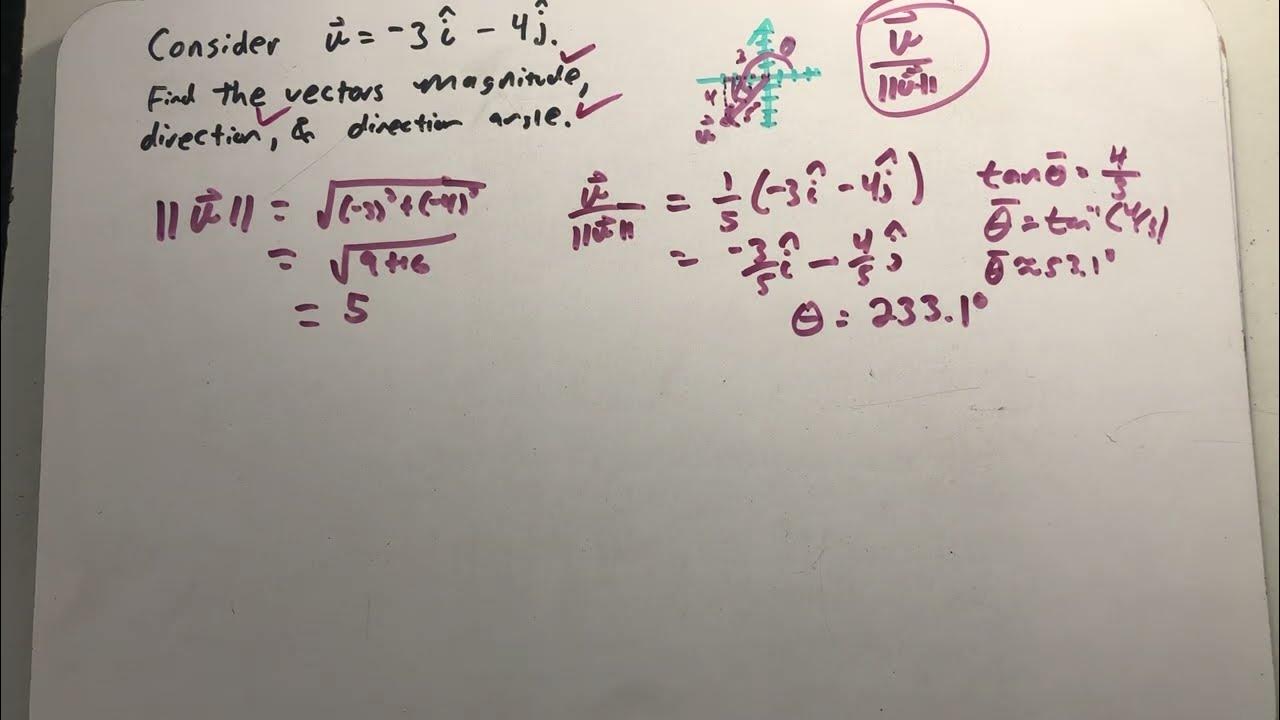 Consider u⃗ = -3î - 4ĵ.
Find the vectors magnitude,
direction, & direction angle.
u⃗ / ||u⃗||
3 θ
4 5
u⃗
||u⃗|| = √((-3)² + (-4)²)
= √(9+16)
= 5
u⃗ / ||u⃗|| = 1/5 (-3î - 4ĵ)
= -3/5 î - 4/5 ĵ
tan θ̄ = 4/3
θ̄ = tan⁻¹(4/3)
θ̄ ≈ 53.1°
θ = 233.1°